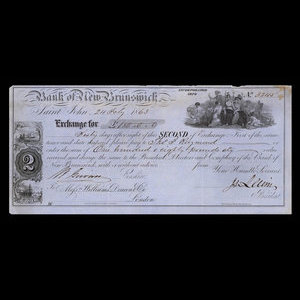 INCORPORATED
1820
Bank of New Brunswick
Saint John, 24 July 1863
Exchange for £180.0.0
Sixty days after sight of this SECOND of Exchange, First of the same
tenor and date unpaid please pay to Thos S.
order the sum of One hundred & eighty pounds stg
received and charge the same to the President, Directors and Company of the Bank of
New Brunswick, with or without advice from Your Humble Servants
2
Cashier
President
To Messrs Williams, Deacon & Co
London